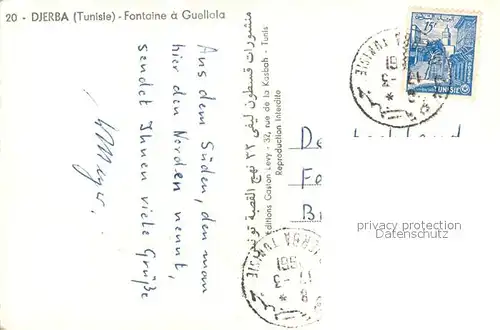 20 - DJERBA (Tunisie) - Fontaine à Guellala
Aus dem Süden, den man
hier den Norden nennt,
sendet Ihnen viele Grüße
WMeyer.
منشورات قسطون ليفي ٣٢ نهج القصبة تونس
Editions Gaston Levy - 32, rue de la Kasbah - Tunis
Reproduction Interdite
15f
TUNISIE
DJERBA TUNISIE
De
Fe
B
privacy protection
Datenschutz